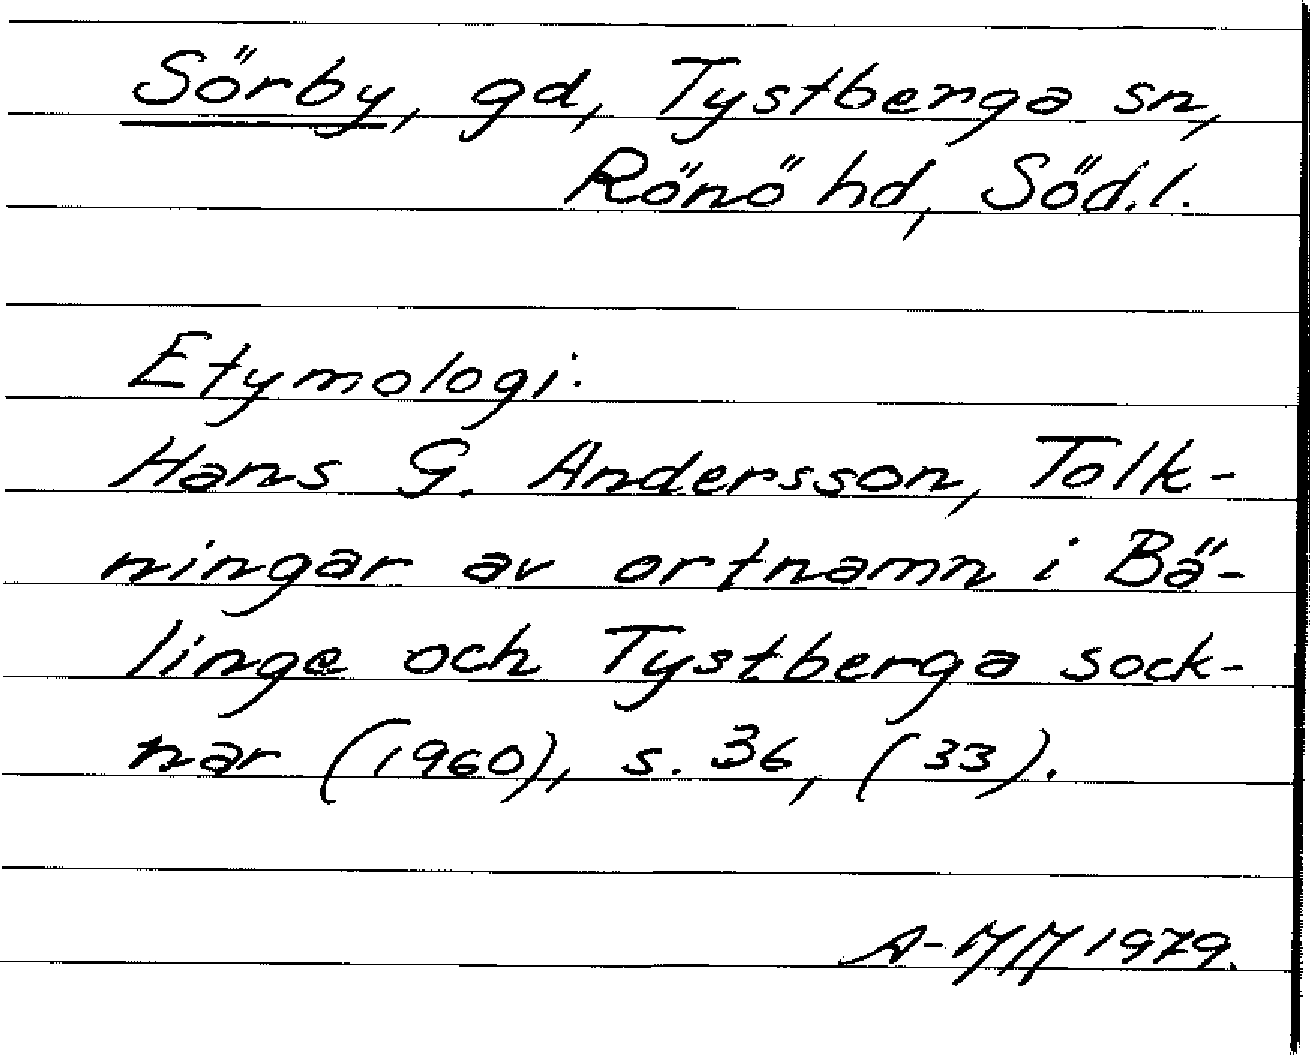 Sörby, gd, Tystberga sn,
Rönö hd, Söd.l.
Etymologi:
Hans G. Andersson, Tolk-
ningar av ortnamn i Bä-
linge och Tystberga sock-
nar (1960), s. 36, (33).
1979.